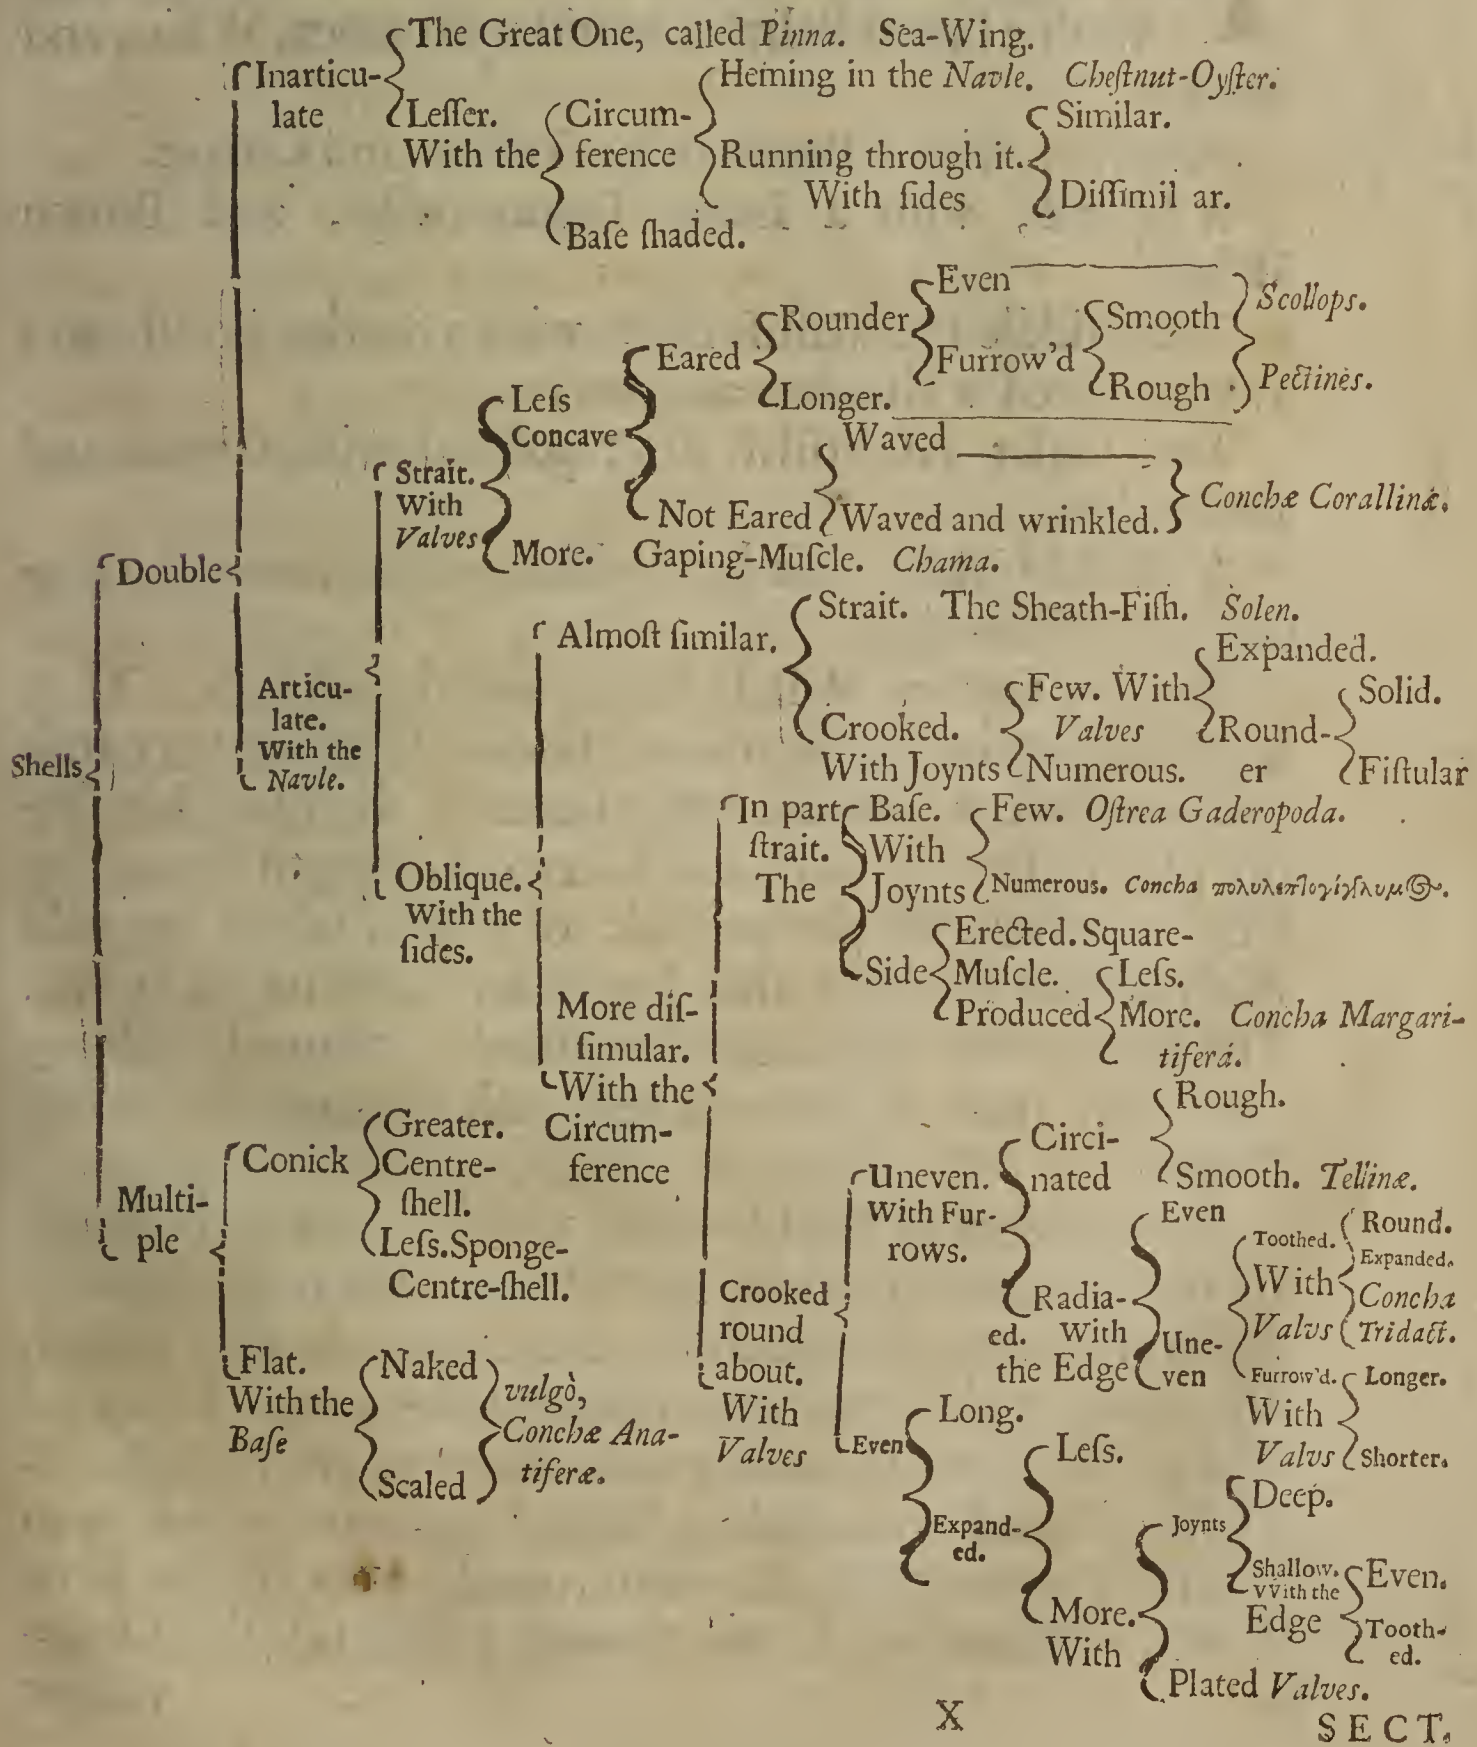 The Great One, called Pinna. Sea-Wing.
Inarticu-
late
Leſſer.
With the
Circum-
ference
Heming in the Navle. Cheſtnut-Oyſter.
Running through it.
With ſides
Similar.
Diſſimil ar.
Baſe ſhaded.
Shells
Double
Articu-
late.
With the
Navle.
Strait.
With
Valves
Leſs
Concave
Eared
Rounder
Even
Furrow'd
Smooth
Rough
Longer.
Scollops.
Pectines.
Not Eared
Waved
Waved and wrinkled.
Conchæ Corallinæ.
More. Gaping-Muſcle. Chama.
Oblique.
With the
ſides.
Almoſt ſimilar.
Strait. The Sheath-Fiſh. Solen.
Crooked.
With Joynts
Few. With
Valves
Expanded.
Round-
er
Solid.
Fiſtular
Numerous.
More diſ-
ſimular.
With the
Circum-
ference
In part
ſtrait.
The
Baſe.
With
Joynts
Few. Oſtrea Gaderopoda.
Numerous. Concha
Side
Erected. Square-
Muſcle.
Produced
Leſs.
More. Concha Margari-
tiferá.
Crooked
round
about.
With
Valves
Uneven.
With Fur-
rows.
Circi-
nated
Rough.
Smooth. Tellinæ.
Radia-
ed. With
the Edge
Even
Une-
ven
Toothed.
With
Valvs
Round.
Expanded.
Concha
Tridact.
Furrow'd.
With
Valvs
Longer.
Shorter.
Even
Long.
Expand-
ed.
Leſs.
More.
With
Joynts
Deep.
Shallow.
VVith the
Edge
Even.
Tooth-
ed.
Plated Valves.
Multi-
ple
Conick
Greater.
Centre-
ſhell.
Leſs. Sponge-
Centre-ſhell.
Flat.
With the
Baſe
Naked
Scaled
vulgò,
Conchæ Ana-
tiferæ.
X
SECT.